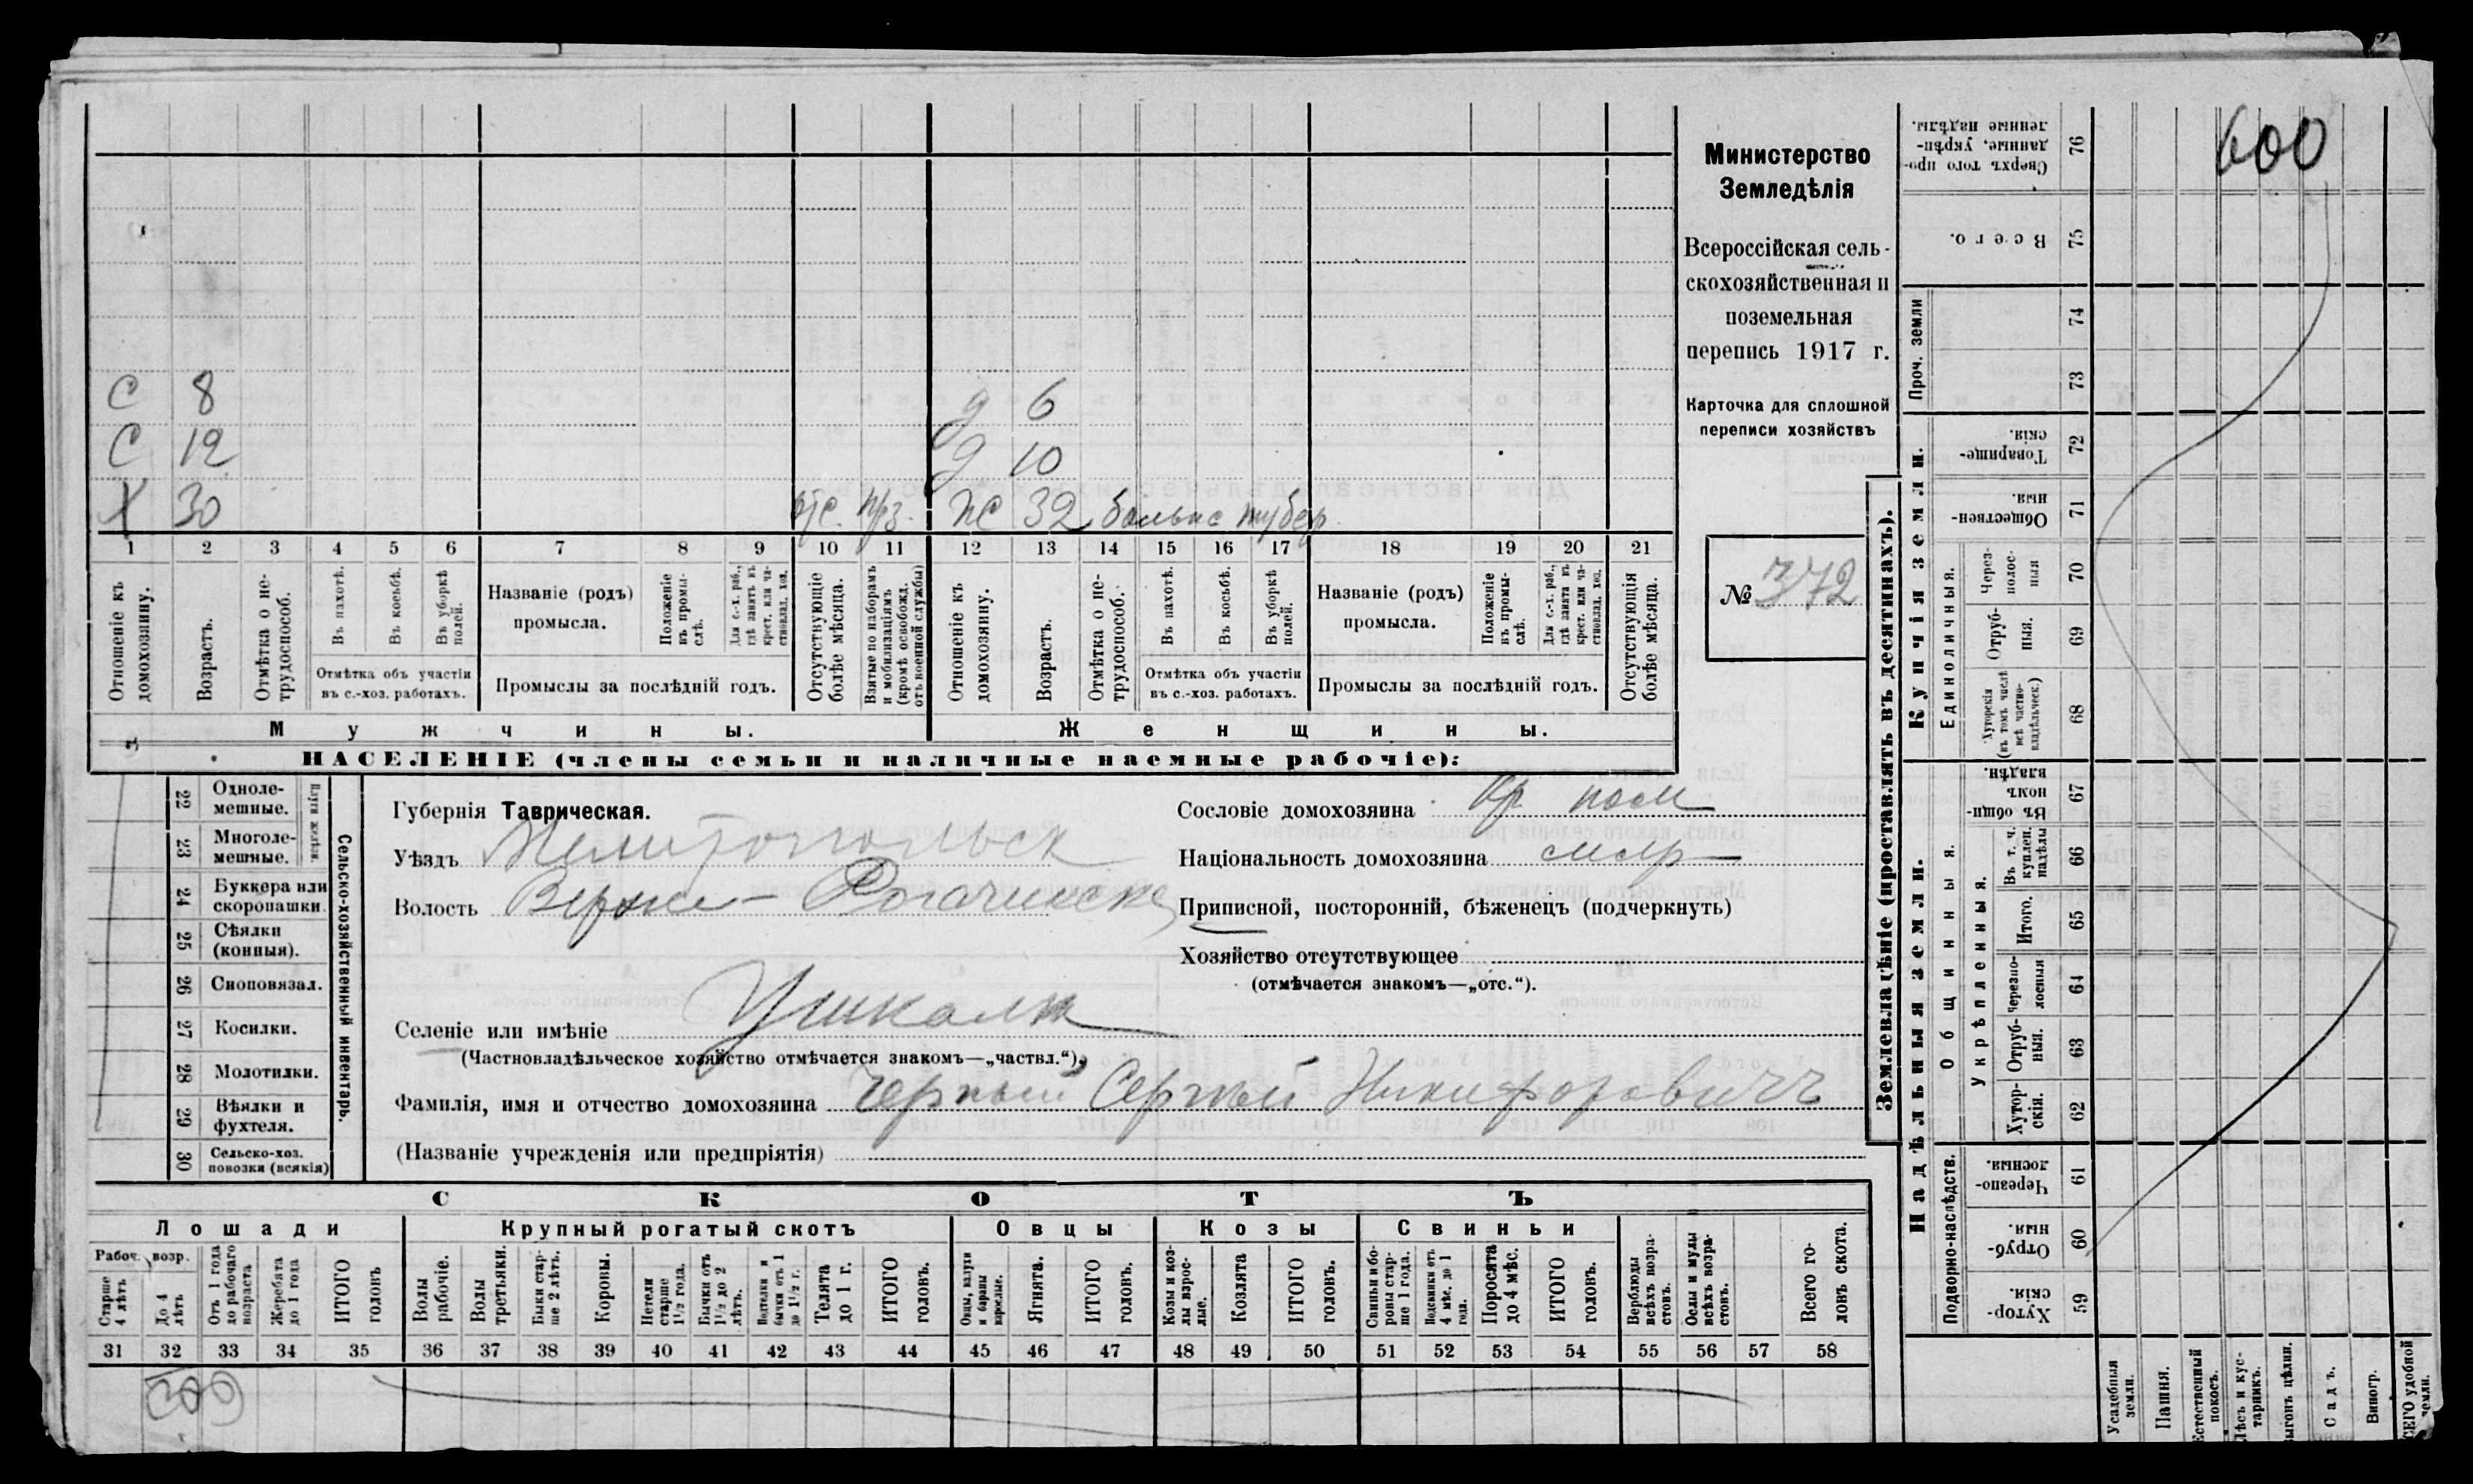 С 8 д 6
С 12 д 10
Х 30 отс. прз. ж 32 больна тубер.
1 2 3 4 5 6 7 8 9 10 11 12 13 14 15 16 17 18 19 20 21
Отношеніе къ домохозяину.
Возрастъ.
Отмѣтка о не-
трудоспособ.
Въ пахотѣ.
Въ косьбѣ.
Въ уборкѣ полей.
Отмѣтка объ участіи
въ с.-хоз. работахъ.
Названіе (родъ)
промысла.
Положеніе въ промы-
слѣ.
Для с.-х. раб., гдѣ занятъ въ крест. или ча-
стновлад. хоз.
Промыслы за послѣдній годъ.
Отсутствующіе болѣе мѣсяца.
Взятые по наборамъ и мобилизаціямъ (кромѣ освобожд. отъ военной службы)
Отношеніе къ домохозяину.
Возрастъ.
Отмѣтка о не-
трудоспособ.
Въ пахотѣ.
Въ косьбѣ.
Въ уборкѣ полей.
Отмѣтка объ участіи
въ с.-хоз. работахъ.
Названіе (родъ)
промысла.
Положеніе въ промы-
слѣ.
Для с.-х. раб., гдѣ занята въ крест. или ча-
стновлад. хоз.
Промыслы за послѣдній годъ.
Отсутствующія болѣе мѣсяца.
Мужчины. Женщины.
НАСЕЛЕНІЕ (члены семьи и наличные наемные рабочіе):
Министерство
Земледѣлія
Всероссійская сель-
скохозяйственная и
поземельная
перепись 1917 г.
Карточка для сплошной
переписи хозяйствъ
№ 372
22 Одноле-
мешные.
23 Многоле-
мешные.
24 Буккера или
скоропашки
25 Сѣялки
(конныя).
26 Сноповязал.
27 Косилки.
28 Молотилки.
29 Вѣялки и
фухтеля.
30 Сельско-хоз.
повозки (всякія)
Сельско-хозяйственный инвентарь.
Губернія Таврическая.
Уѣздъ Мелитопольск
Волость Верхне-Рогачинска
Селеніе или имѣніе Ушкалк
(Частновладѣльческое хозяйство отмѣчается знакомъ—„частвл.“).
Фамилія, имя и отчество домохозяина Черный Сергѣй Никифоровичъ
(Названіе учрежденія или предпріятія)
Сословіе домохозяина Кр посел
Національность домохозяина малр
Приписной, посторонній, бѣженецъ (подчеркнуть)
Хозяйство отсутствующее
(отмѣчается знакомъ—„отс.“).
СКОТЪ
Лошади Крупный рогатый скотъ Овцы Козы Свиньи
Рабоч. возр.
Старше 4 лѣтъ
До 4 лѣтъ
Отъ 1 года до рабочаго возраста
Жеребята до 1 года
ИТОГО головъ
Волы рабочіе.
Волы третьяки.
Быки стар-
ше 2 лѣтъ.
Коровы.
Нетели старше 1½ года.
Бычки отъ 1½ до 2 лѣтъ.
бычки отъ 1 до 1½ г.
Телята до 1 г.
ИТОГО головъ.
Овцы, валухи и бараны взрослые.
Ягнята.
ИТОГО головъ.
Козы и коз-
лы взрос-
лые.
Козлята
ИТОГО головъ.
Свиньи и бо-
ровы стар-
ше 1 года.
Подсвинки отъ 4 мѣс. до 1 года.
Поросята до 4 мѣс.
ИТОГО головъ.
Верблюды всѣхъ возра-
стовъ.
Ослы и мулы всѣхъ возра-
стовъ.
Всего го-
ловъ скота.
31 32 33 34 35 36 37 38 39 40 41 42 43 44 45 46 47 48 49 50 51 52 53 54 55 56 57 58
300
Землевладѣніе (проставлять въ десятинахъ).
Надѣльныя земли. Купчія земли. Проч. земли
Подворно-наслѣдств.
Общинныя.
Укрѣпленныя.
Единоличныя.
76 Сверхъ того про-
данные, укрѣп-
ленные надѣлы.
600
75 Всего.
74
73
72 Товарище-
скія.
71 Обществен-
ныя.
70 Через-
полос-
ныя
69 Отруб-
ныя.
68 Хуторскія (въ томъ числѣ всѣ частно-
владѣльческ.)
67 Въ общи-
номъ
владѣн.
66 Въ т. ч. куплен. надѣлы
65 Итого.
64 Черезпо-
лосныя
63 Отруб-
ныя.
62 Хутор-
скія.
61 Черезпо-
лосныя.
60 Отруб-
ныя.
59 Хутор-
скія.
Усадебныя земли.
Пашня.
Естественный покосъ.
Лѣсъ и кус-
тарникъ.
Садъ.
Виногр.